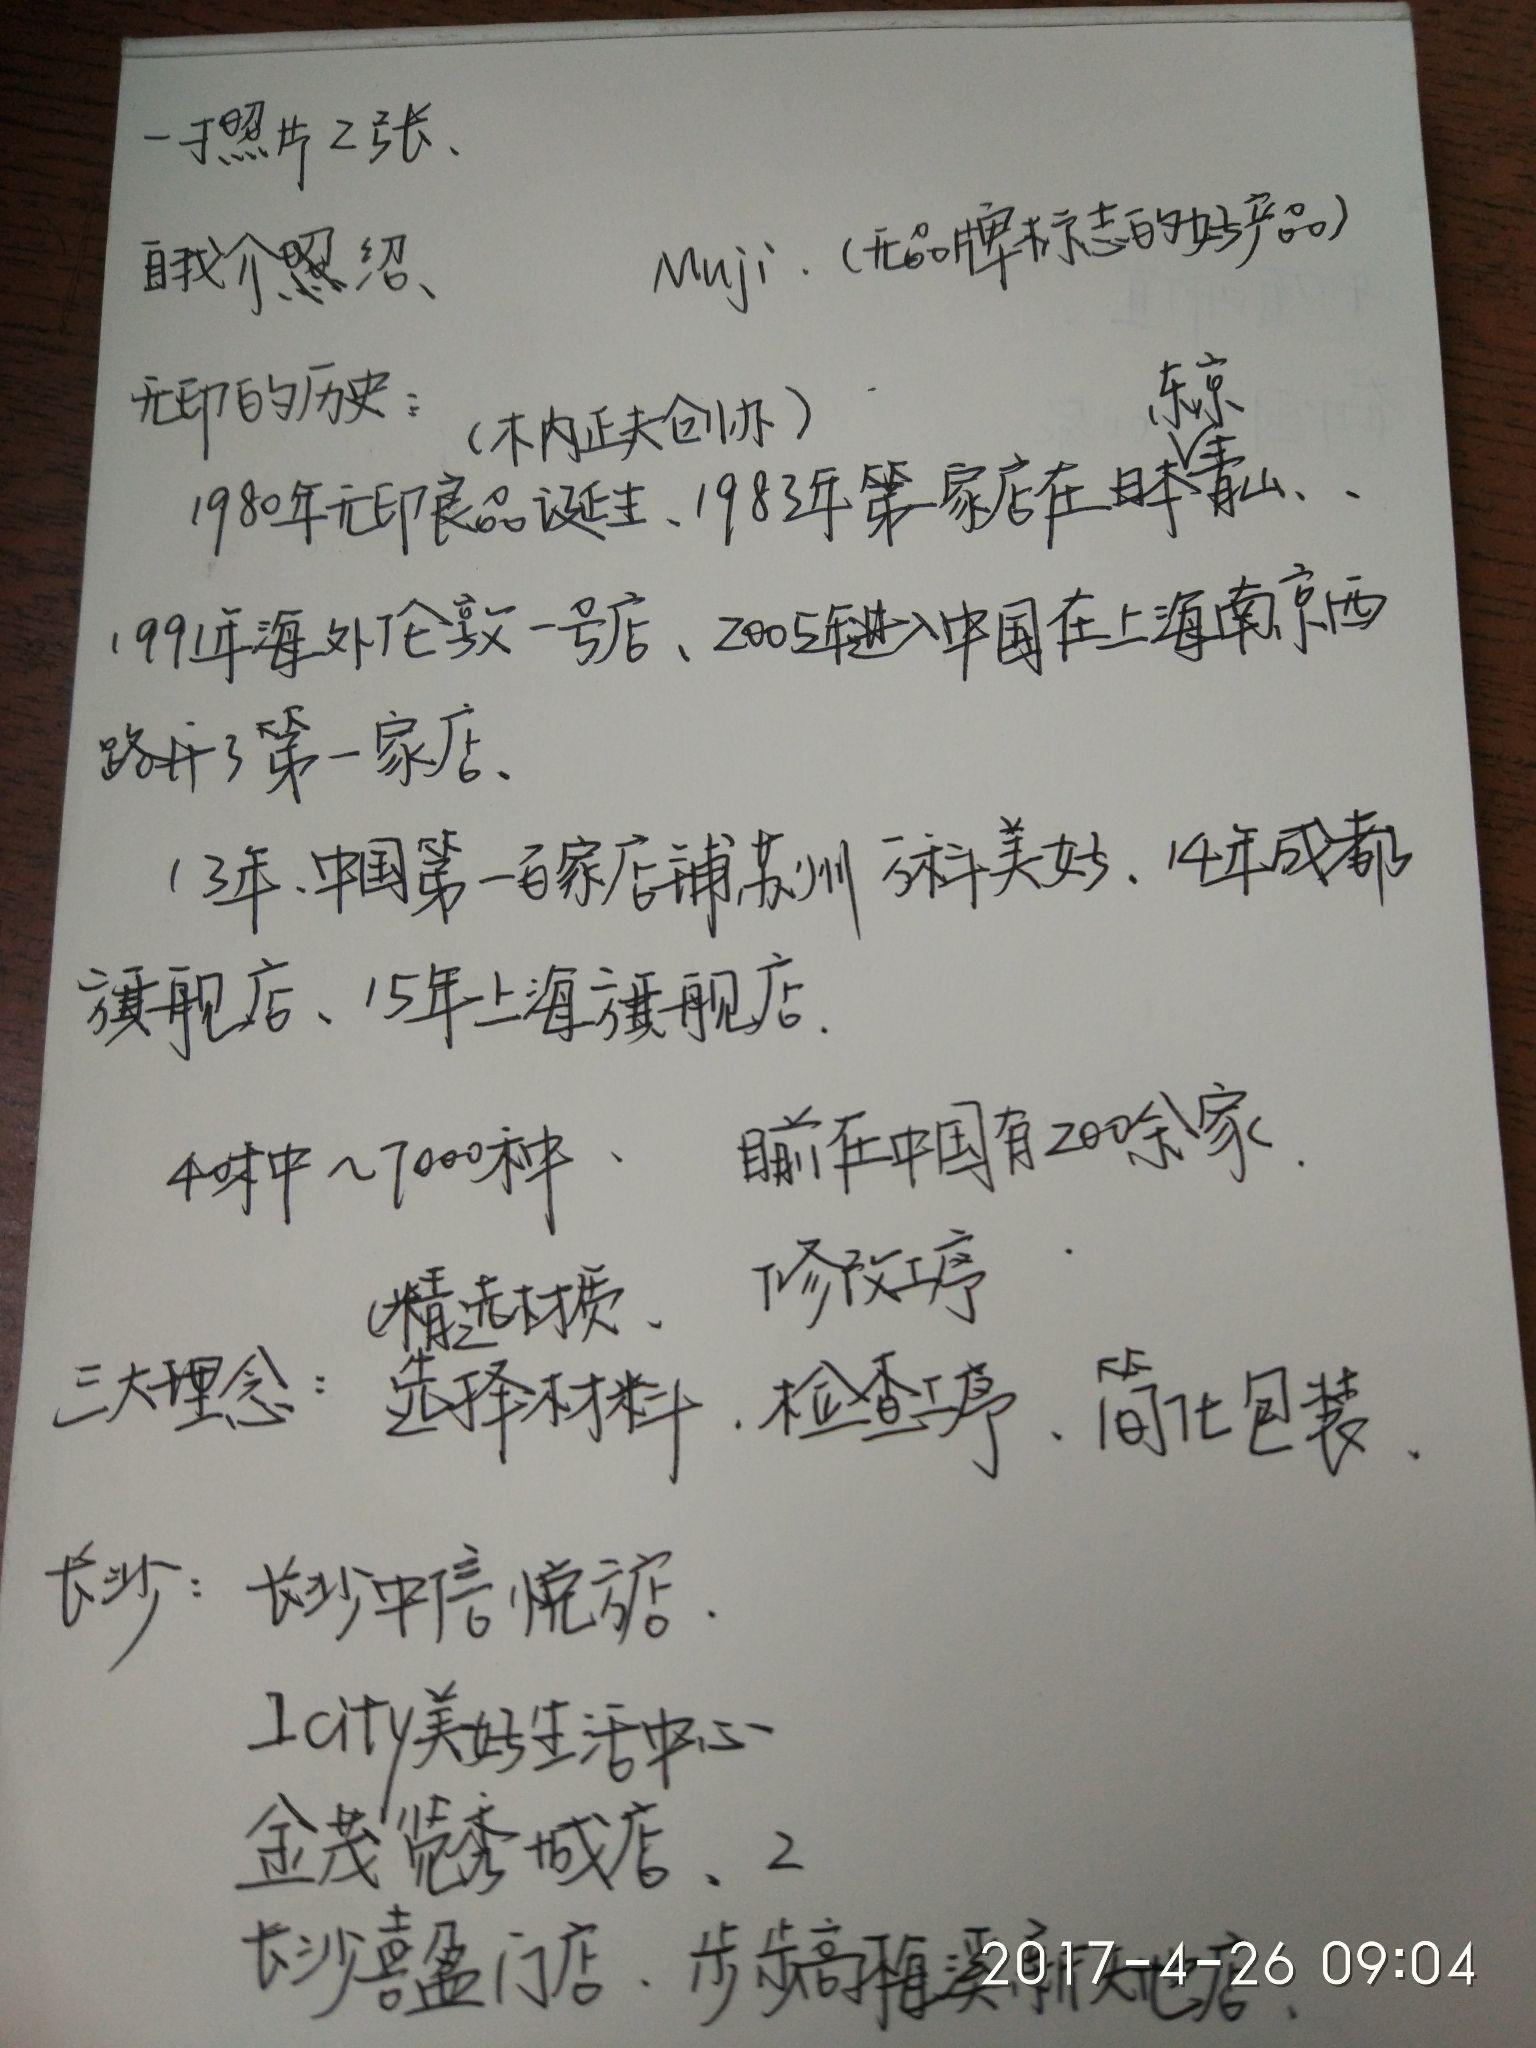 一寸照片2张、
自我介绍、 Muji.(无品牌标志的好产品)
无印的历史:
(木内正夫创办) 东京
1980年无印良品诞生、1983年第一家店在日本青山、、
1991年海外伦敦一号店、2005年进入中国在上海南京西
路开了第一家店、
13年、中国第一百家店铺苏州万科美好、14年成都
旗舰店、15年上海旗舰店.
40种~7000种、 目前在中国有200余家.
(精选材质、 修改工序
三大理念:选择材料.检查工序、简化包装.
长沙:长沙中信悦方店.
Icity美好生活中心
金茂览秀城店、2
长沙喜盈门店、步步高梅溪新天地店、
2017-4-26 09:04